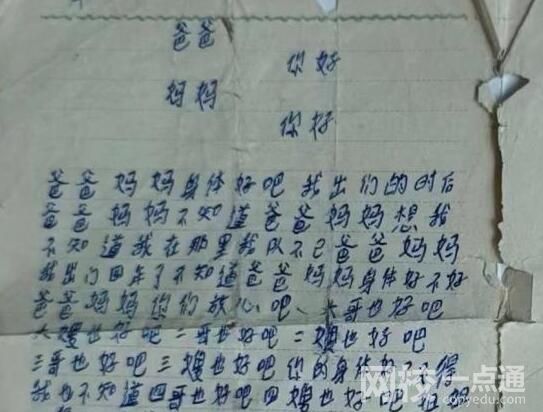 爸爸
你好
妈妈
你好
爸爸妈妈身体好吧我出们的时后
爸爸妈妈不知道爸爸妈妈想我
不知道我在那里我以不己爸爸妈妈
我出们四年了不知道爸爸妈妈身体好不好
爸爸妈妈你们放心吧、大哥也好吧
大嫂也好吧二哥也好吧二嫂也好吧
三哥也好吧三嫂也好吧你的身体好不得
我也不知道四哥也好吧四嫂也好吧
网校一点通
conyedu.com